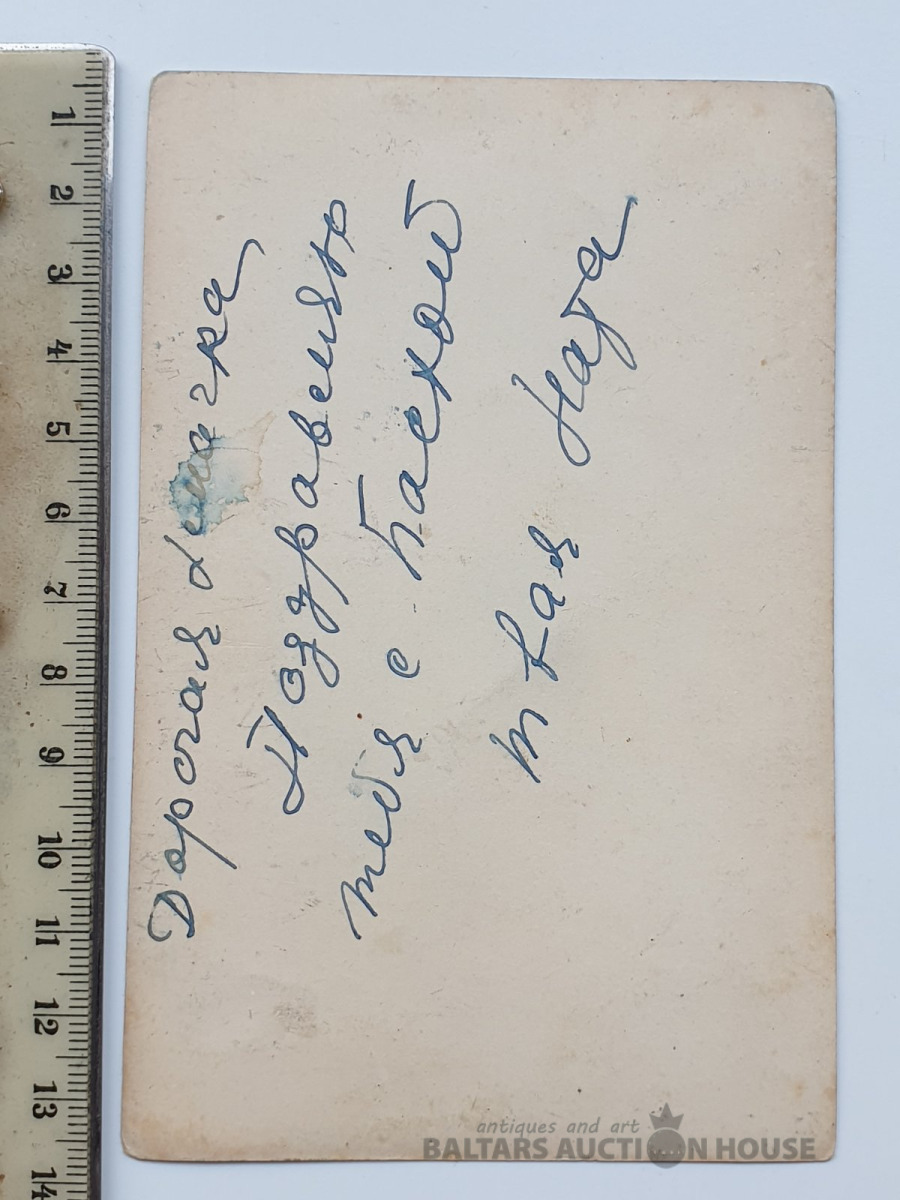 Дорогая
Поздравляю
тебя с Пасхой
твая Ната
1
2
3
4
5
6
7
8
9
10
11
12
13
14
antiques and art
BALTARS AUCTION HOUSE